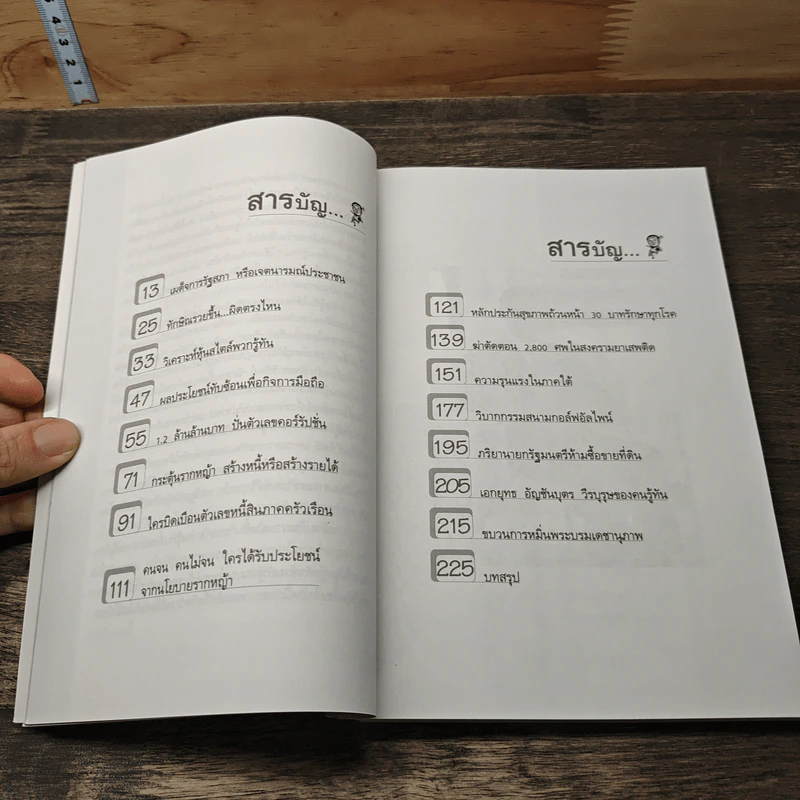 4 3 2 1
สารบัญ...
13 เผด็จการรัฐสภา หรือเจตนารมณ์ประชาชน
25 ทักษิณรวยขึ้น...ผิดตรงไหน
33 วิเคราะห์หุ้นสไตล์พวกรู้ทัน
47 ผลประโยชน์ทับซ้อนเพื่อกิจการมือถือ
55 1.2 ล้านล้านบาท ปั่นตัวเลขคอร์รัปชั่น
71 กระตุ้นรากหญ้า สร้างหนี้หรือสร้างรายได้
91 ใครบิดเบือนตัวเลขหนี้สินภาคครัวเรือน
111 คนจน คนไม่จน ใครได้รับประโยชน์
จากนโยบายรากหญ้า
สารบัญ...
121 หลักประกันสุขภาพถ้วนหน้า 30 บาทรักษาทุกโรค
139 ฆ่าตัดตอน 2,800 ศพในสงครามยาเสพติด
151 ความรุนแรงในภาคใต้
177 วิบากกรรมสนามกอล์ฟอัลไพน์
195 ภริยานายกรัฐมนตรีห้ามซื้อขายที่ดิน
205 เอกยุทธ อัญชันบุตร วีรบุรุษของคนรู้ทัน
215 ขบวนการหมิ่นพระบรมเดชานุภาพ
225 บทสรุป